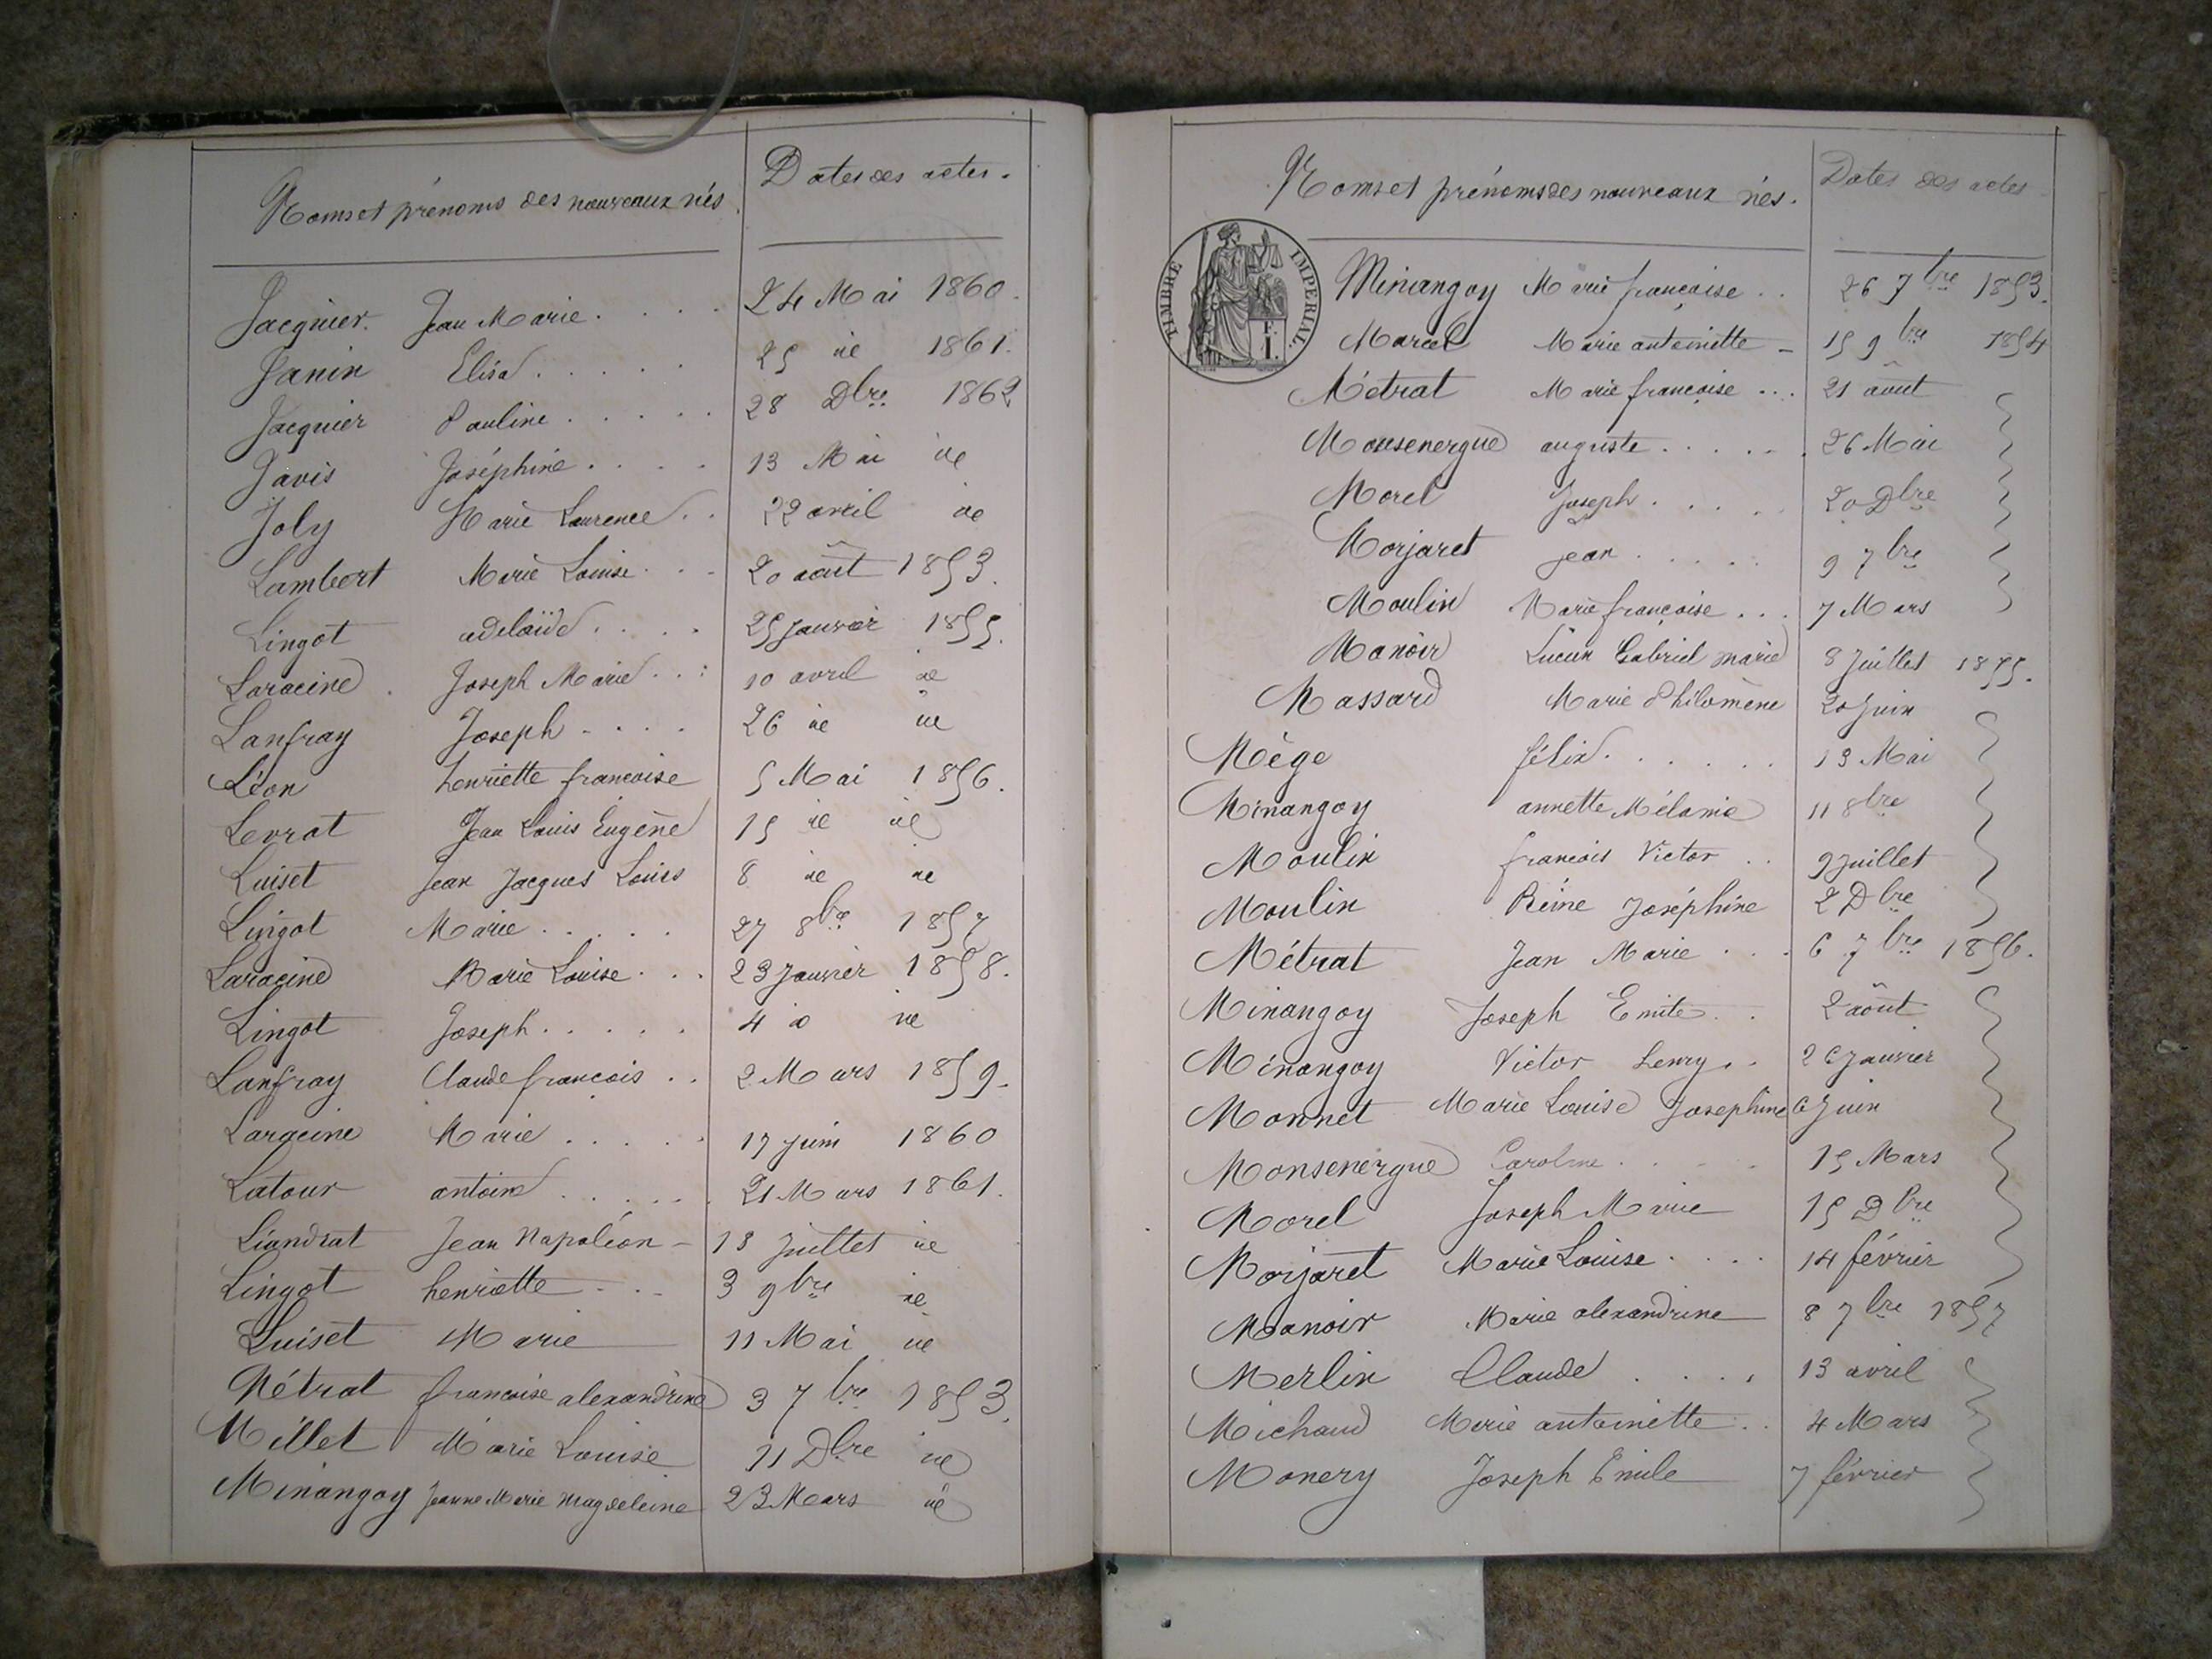 Noms et prénoms des nouveaux nés Dates des actes.
Jacquier. Jean Marie . . . . 24 Mai 1860.
Janin Elisa . . . . . 25 id 1861.
Jacquier Pauline . . . . . 28 Dbre 1862
Javis Joséphine . . . . 13 Mai id
Joly Marie Laurence . . 22 avril id
Lambert Marie Louise . . . 20 août 1853.
Lingot adelaïde . . . . 25 janvier 1855.
Laracine Joseph Marie . . : 10 avril id
Lanfray Joseph . . . . 26 id id
Léon henriette françoise 5 Mai 1856.
Levrat Jean Louis Eugène 15 id id
Luiset Jean Jacques Louis 8 id id
Lingot Marie . . . . . 27 8bre 1857
Laracine Marie Louise . . . 23 Janvier 1858.
Lingot Joseph . . . . . 4 id
Lanfray Claude françois . . 2 Mars 1859.
Laracine Marie . . . . . 17 juin 1860
Latour antoine . . . . . 21 Mars 1861.
Liandrat Jean Napoléon - 13 juillet id
Lingot henriette - . - 3 9bre id
Luiset Marie 11 Mai id
Métrat françoise alexandrine 3 7bre 1853.
Millet Marie Louise 11 Dbre id
Minangoy Jeanne Marie Magdeleine 23 Mars id
Noms et prénoms des nouveaux nés. Dates des actes
TIMBRE IMPERIAL
E.
I.
Minangoy Marie françoise . . 26 7bre 1853.
Marcel Marie antoinette - 15 9bre 1854
Métrat Marie françoise . . . 21 août
Monsenergue auguste . . . . . 26 Mai
Morel Joseph . . . . . 20 Dbre
Morjaret jean . . . . . 9 7bre
Moulin Marie françoise . . . 7 Mars
Manoir Lucien Gabriel marie 8 Juillet 1855.
Massard Marie Philomène 20 Juin
Mège félix . . . . . . 13 Mai
Minangoy annette Mélanie 11 8bre
Moulin françois Victor . . 9 juillet
Moulin Reine Joséphine 2 Dbre
Métrat Jean Marie . . . 6 7bre 1856.
Minangoy Joseph Emile . . 2 août
Minangoy Victor henry . . 26 Janvier
Monnet Marie Louise Josephine 6 Juin
Monsenergue Caroline . . . . 15 Mars
Morel Joseph Marie 15 Dbre
Morjaret Marie Louise . . . . 14 février
Manoir Marie alexandrine 8 7bre 1857
Merlin Claude . . . . 13 avril
Michaud Marie antoinette . . 4 Mars
Monery Joseph Emile 7 février